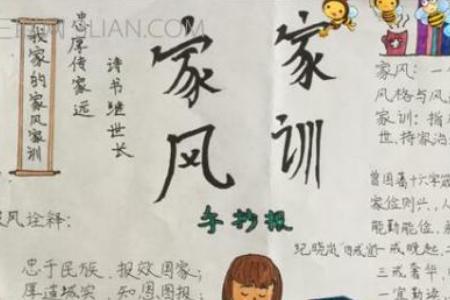 我家的家风家训
忠厚传家远
诗书继世长
家风
家训
手抄报
家风诠释:
忠于民族、报效国家;
厚道诚实、知恩图报
家风:一
风格与风
家训:指
世、持家治
曾国藩十六字
家俭则兴,人
能勤能俭,
纪晓岚
一戒晚起,二
三戒奢华,
一宜勤读,